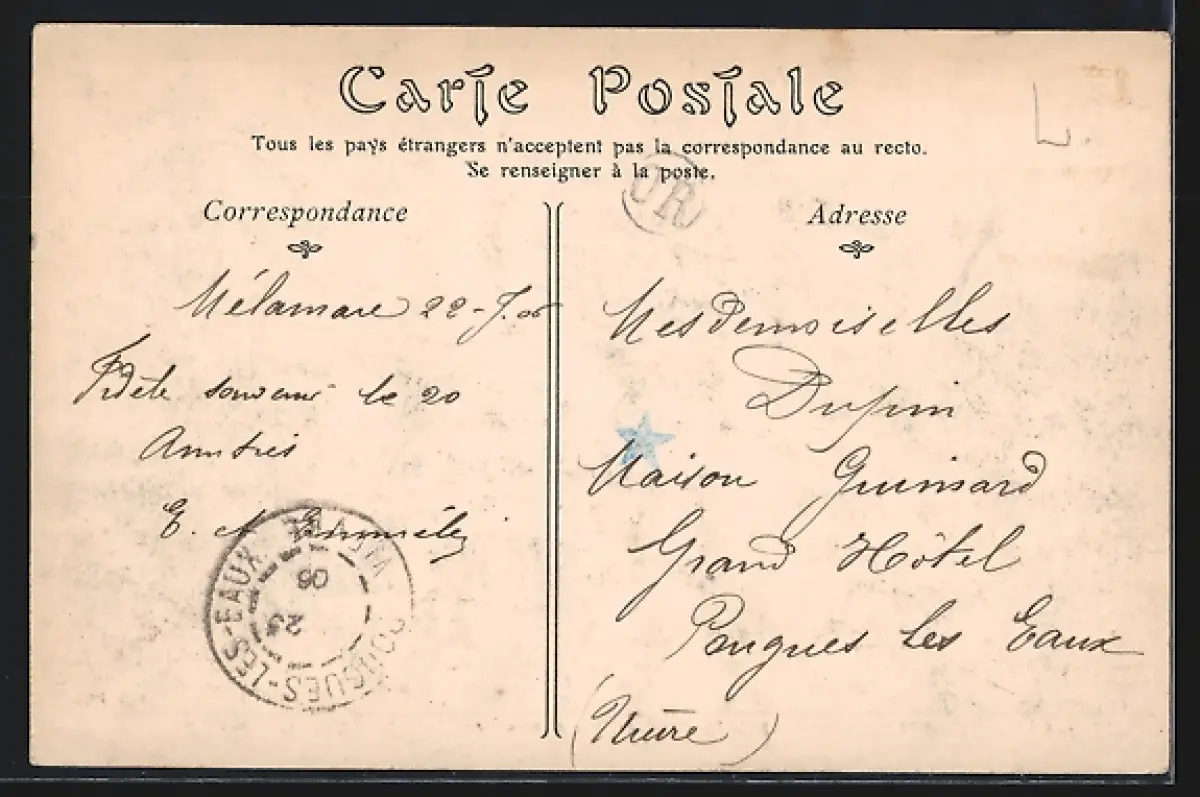 Carte Postale
Tous les pays étrangers n'acceptent pas la correspondance au recto.
Se renseigner à la poste.
OR
L.
Correspondance
Mélamare 22-7.06
souvenir le 20
E.
POUGUES-LES-EAUX NIÈVRE
23
06
Adresse
Mesdemoiselles
Dupin
Maison Guimard
Grand Hôtel
Pougues les Eaux
(Nièvre)